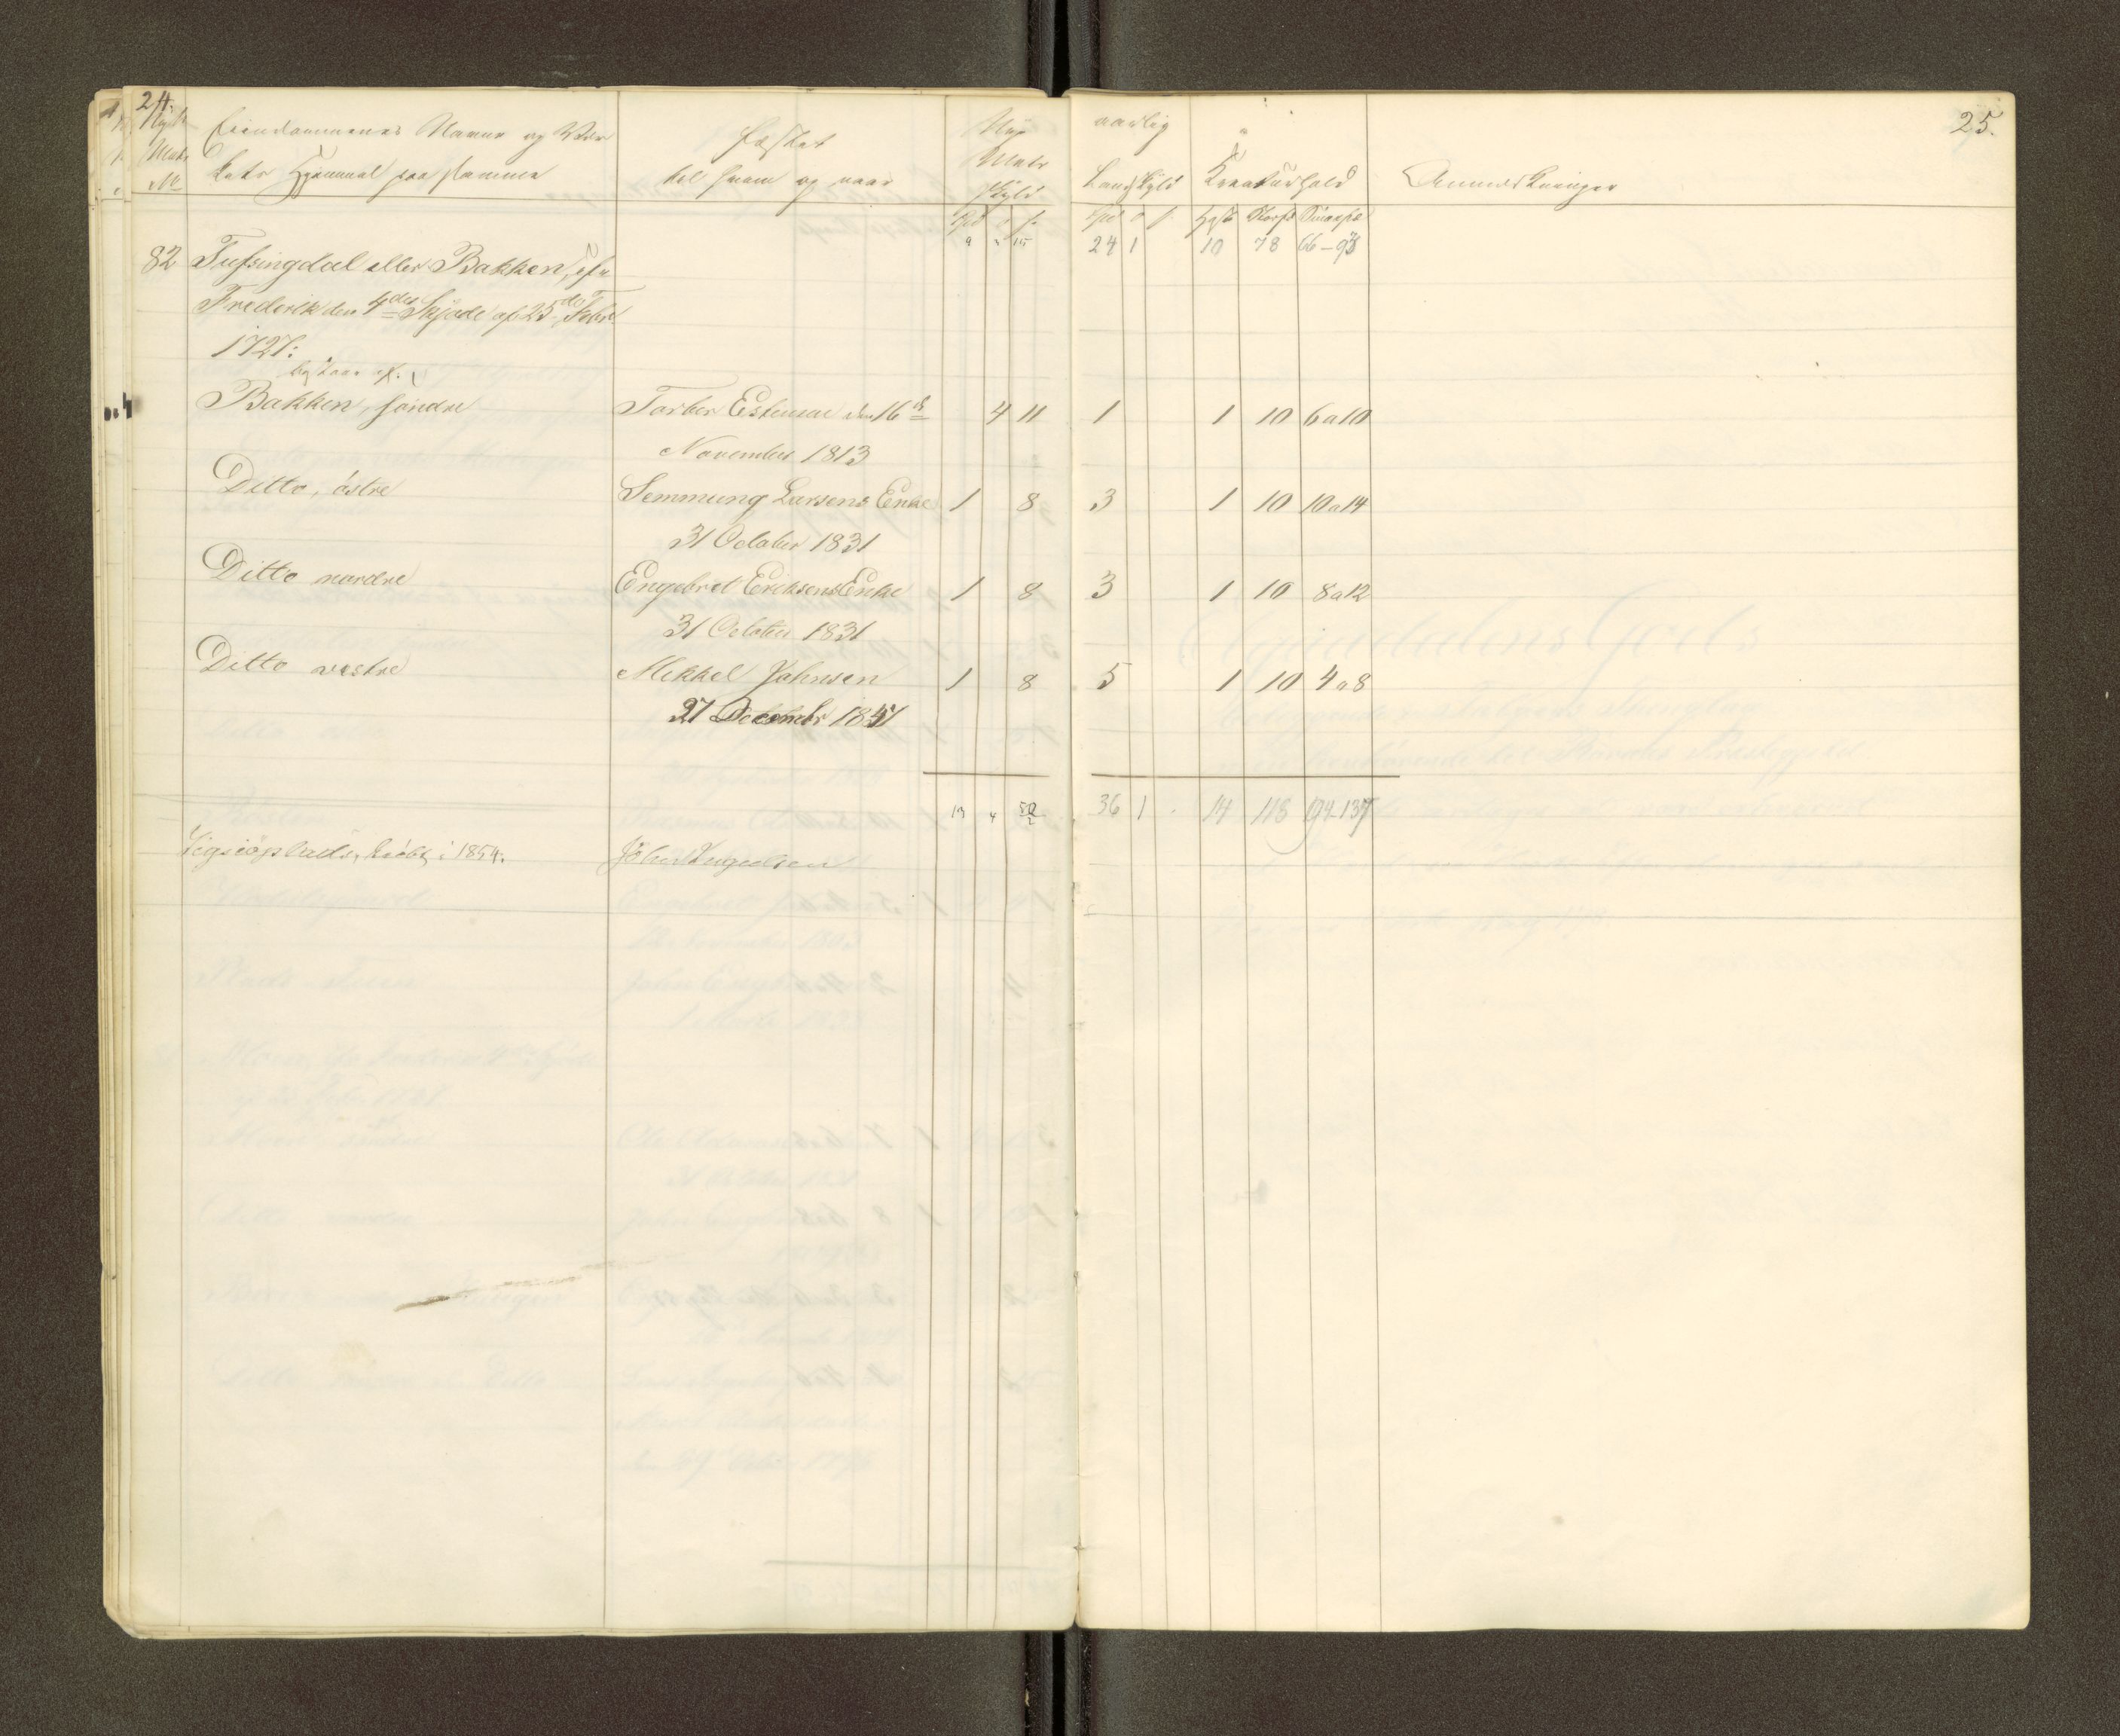 24.
25.
Nye Matr No
Eiendommenes Navne og
paa samme
Fæstet
til hvem og naar
Nye
Matr
Skyld
aarlig
Landskyld
Kreaturhold
Anmærkninger
9 15
24 1 10 78 66-93
82 Tufsingdal eller Bakken, ifr
Frederik den 4des Skjøde af 25de Febr
1727:
bestaar af:
Bakken, søndre Torber Estensen den 16de 4 11 1 1 10 6 a 10
November 1813
Ditto, östre Semmung Larsens Enke 1 8 3 1 10 10 a 14
31 October 1831
Ditto nordre Engebret Eriksens Enke 1 8 3 1 10 8 a 12
31 October 1831
Ditto vestre Mikkel Johnsen 1 8 5 1 10 4 a 8
27 Decembr 1851
13 4 50 36 1 14 118 94-137
i 1854. John